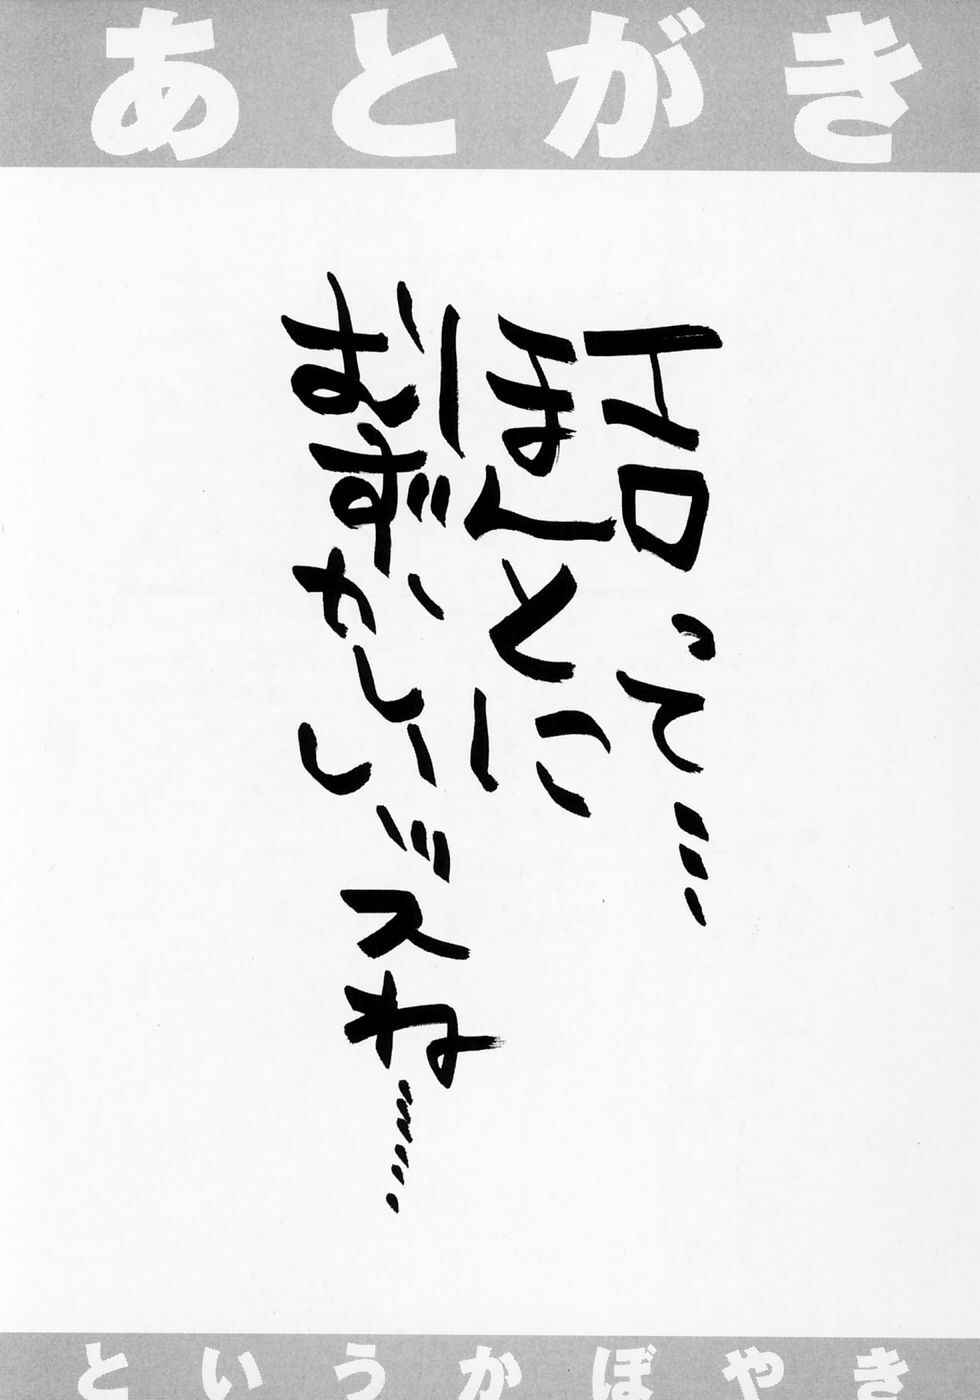 あとがき
エロって…
ほんとに
むずかしいッスね……
というかぼやき